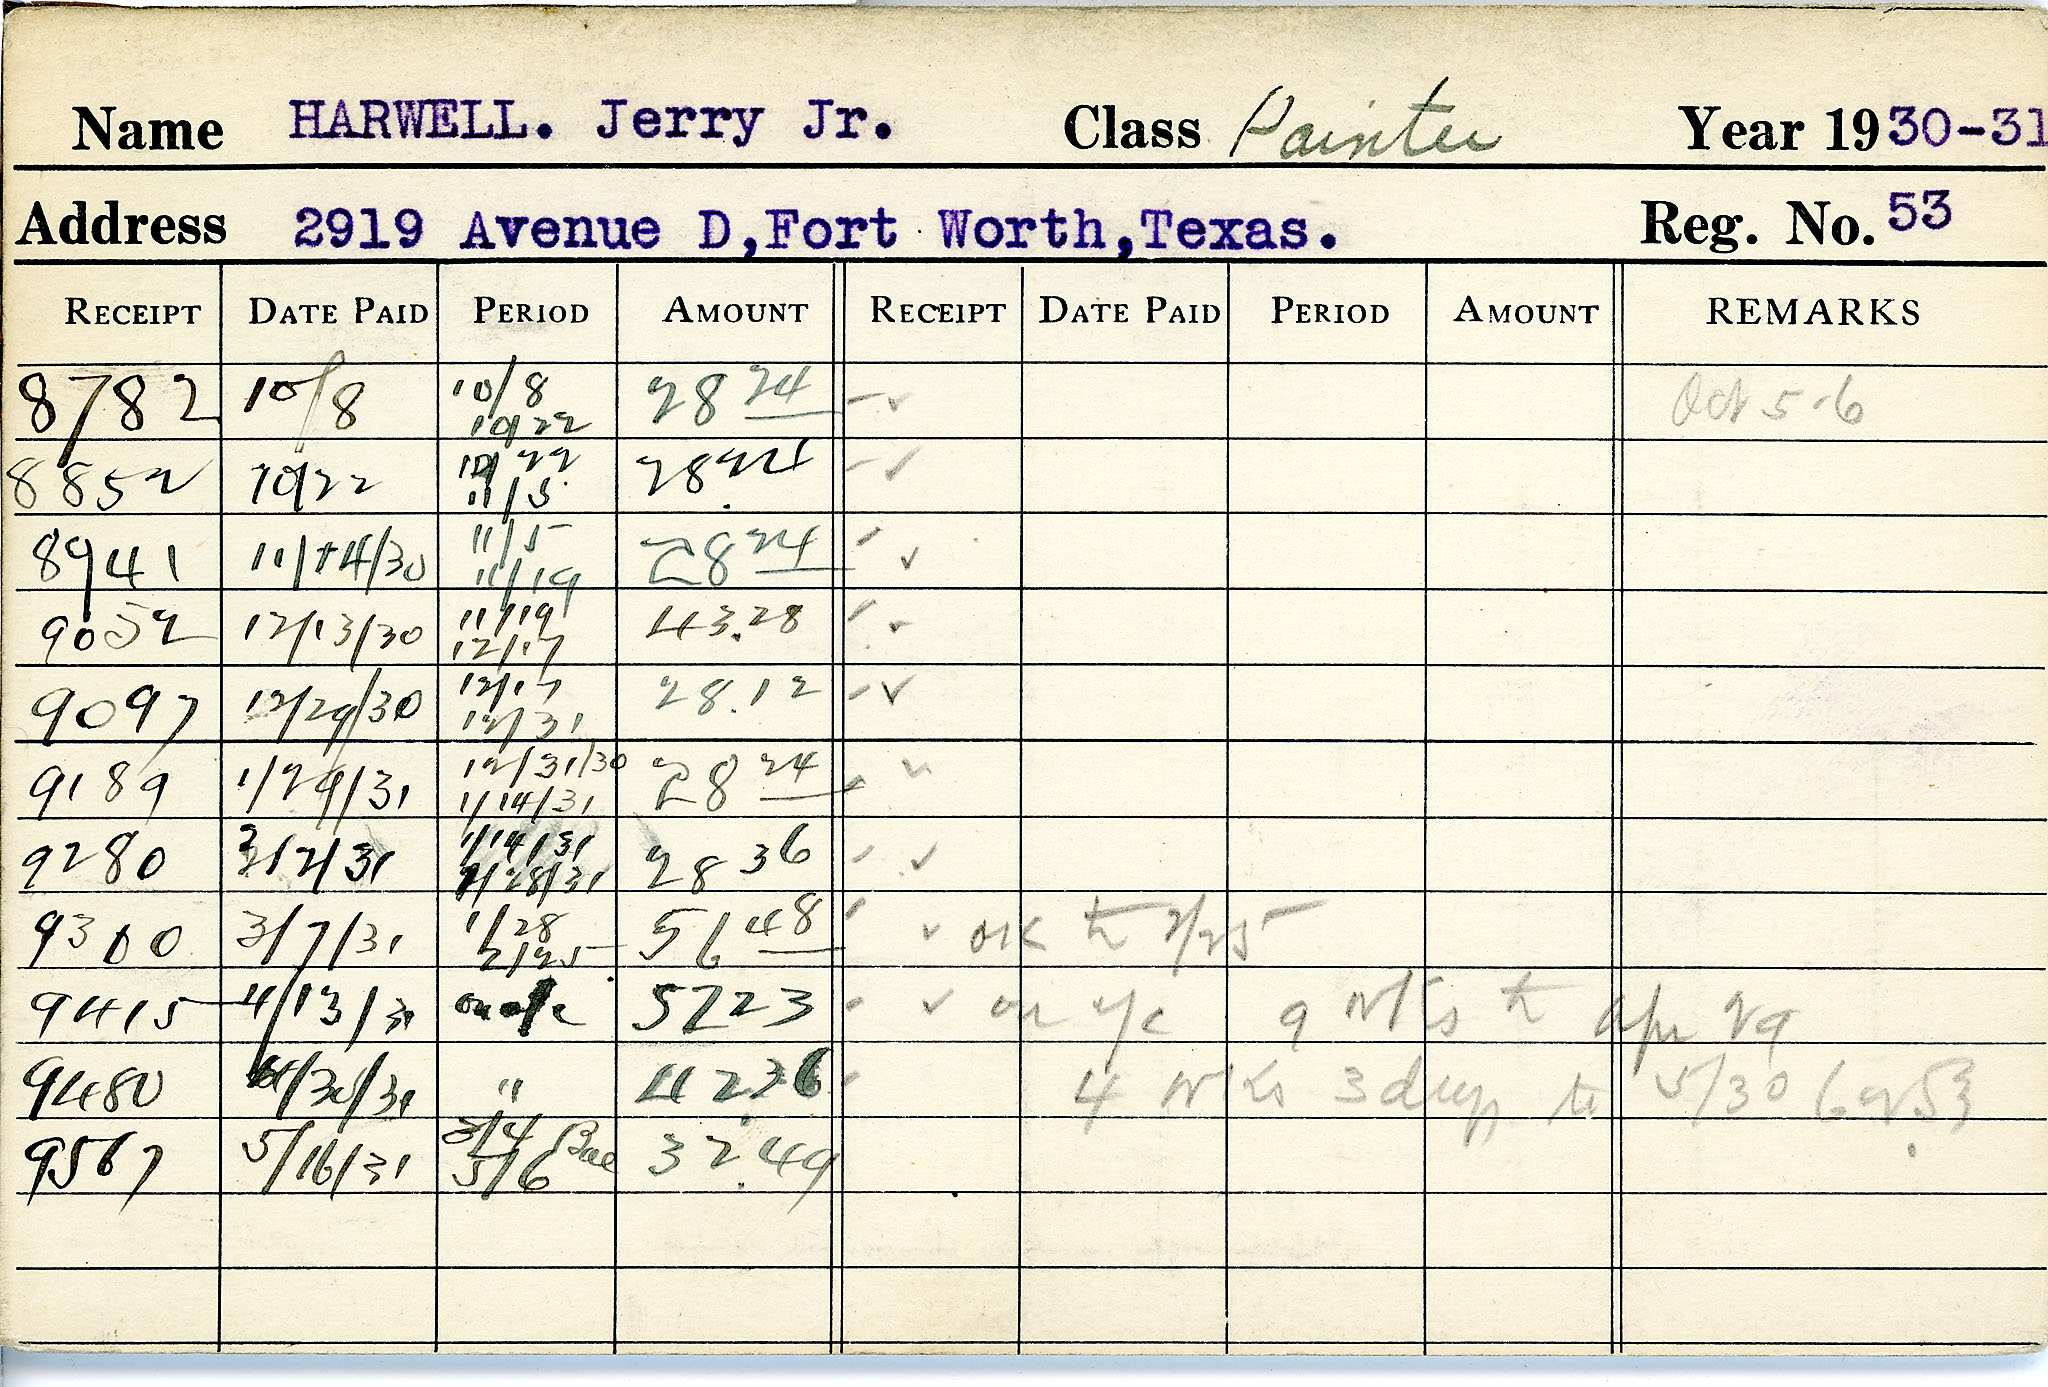 Name HARWELL. Jerry Jr. Class Painter Year 1930-31
Address 2919 Avenue D, Fort Worth, Texas. Reg. No. 53
RECEIPT DATE PAID PERIOD AMOUNT RECEIPT DATE PAID PERIOD AMOUNT REMARKS
8782 10/8 10/8 28 24 Oct 5-6
10/22
8852 10/22 10/22 28 24
11/5
8941 11/14/30 11/5 28 24
11/19
9052 12/13/30 11/19 43.28
12/17
9097 12/29/30 12/17 28.12
12/31
9189 1/29/31 12/31/30 28 24
1/14/31
9280 3/2/31 1/14/31 28 36
1/28/31
9300 3/7/31 1/28 56 48 ok to 2/25
2/25
9415 4/13/31 on a/c 57 23 on a/c 9 wks to Apr 29
9480 4/30/31 " 42.36 4 wks 3 days to 5/30
9567 5/16/31 3/4 Bal 32.49
5/6